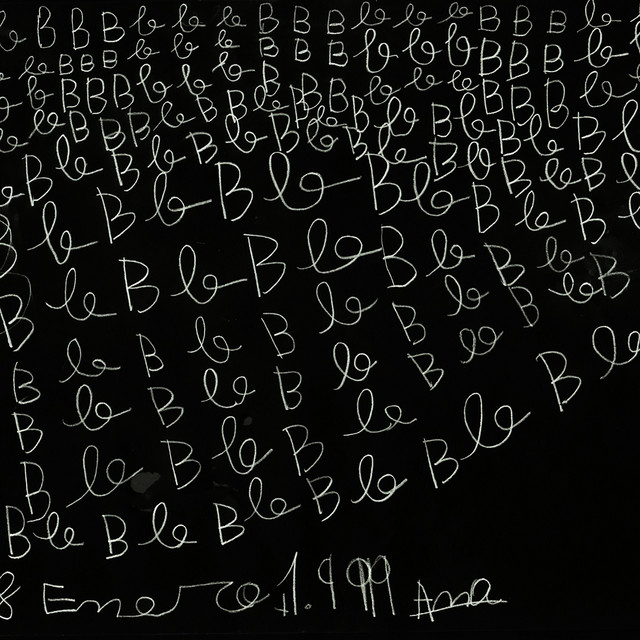 b B B B b b b B B B b b b B B B b
b b b B B B b b b B B B b
b b B B B b b b B B B b b b B B B b
b b B B B b b B b B B b b B b B b B b
b B b B b B b B b B b B b B b
B b B b B b B b B b B b
B b B b B b B b B b B
B b B b B b B b B
B b B b B b B b
B b B b B b
B b B b B b B b B b
B b B b B b B b
8 Enero 1.999 Ana